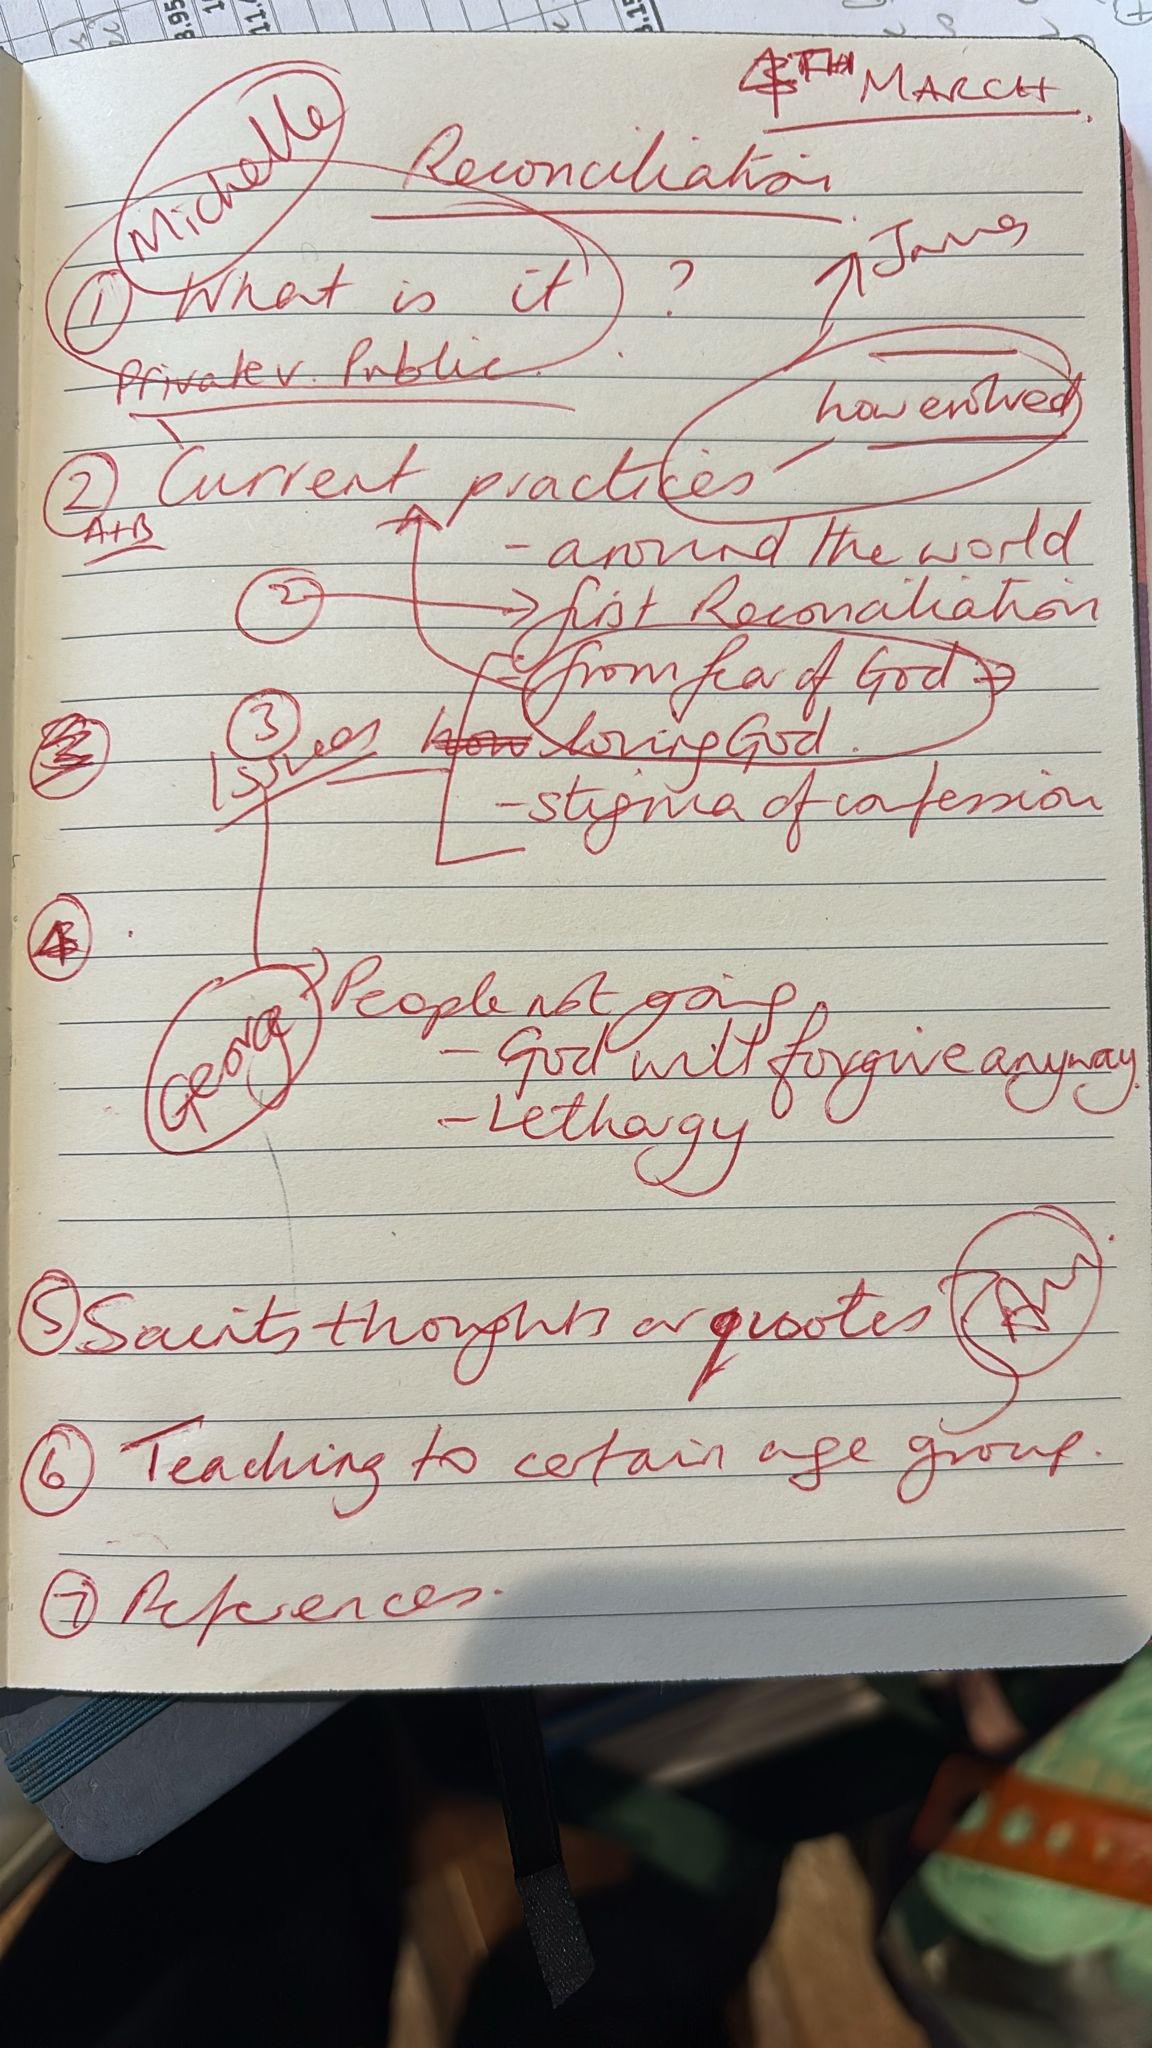 4TH MARCH
Michelle
Reconciliation
James
① What is it ?
Private v. Public.
how evolved
② Current practices
A+B
- around the world
② → first Reconciliation
- from fear of God →
③
Issues how loving God.
- stigma of confession
4
George
People not going
- God will forgive anyway.
- Lethargy
⑤ Saints thoughts or quotes
⑥ Teaching to certain age group.
⑦ References.